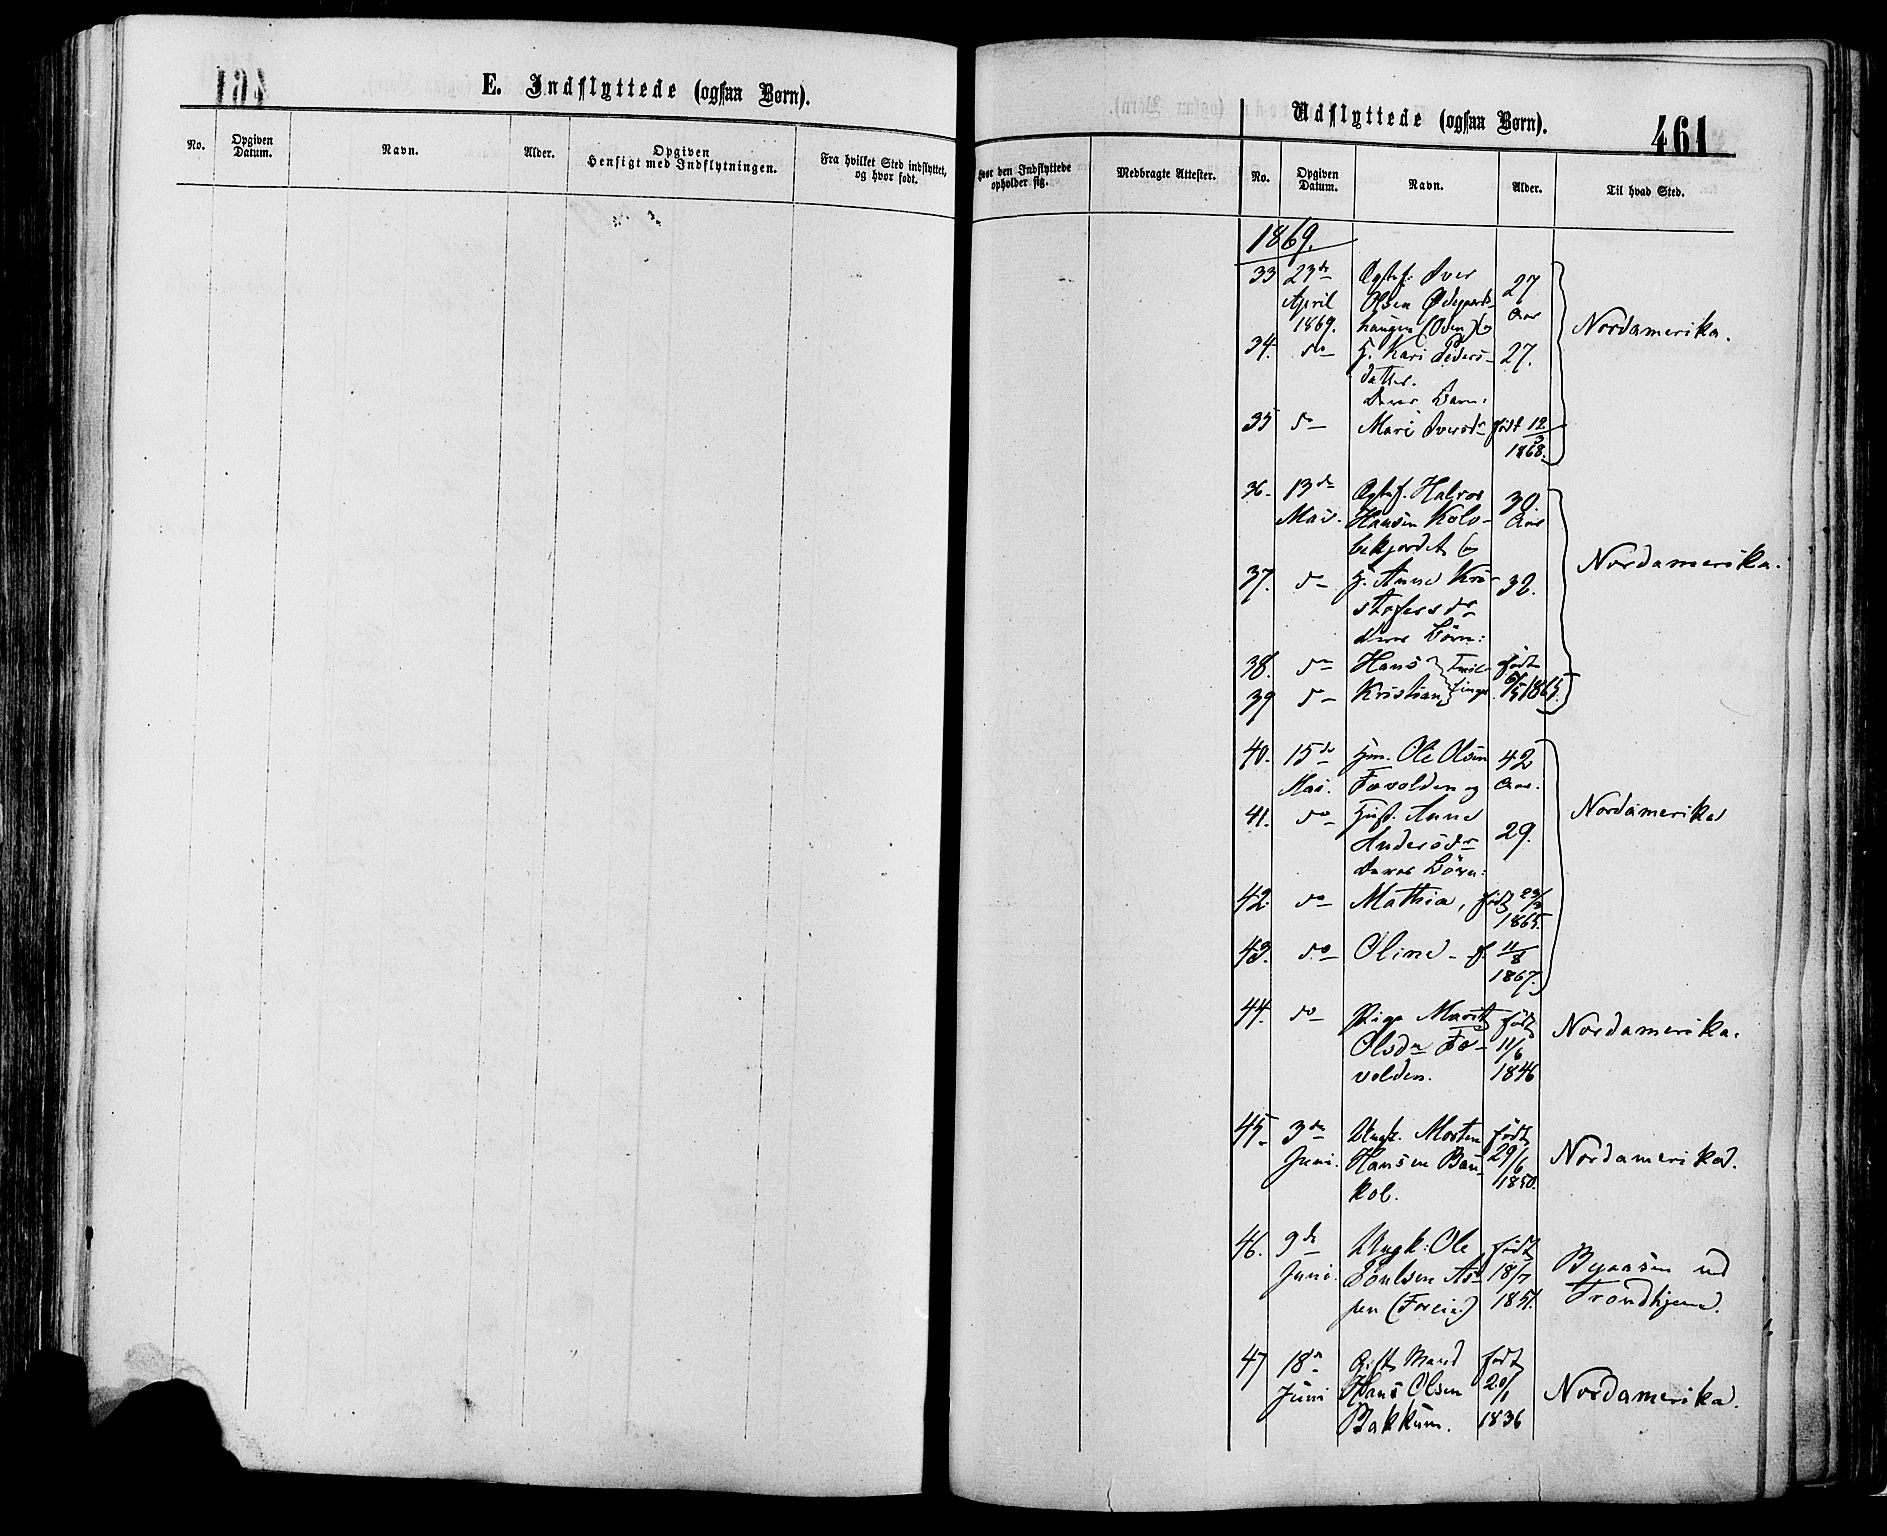 E. Indflyttede (ogsaa Børn).
No.
Opgiven Datum.
Navn.
Alder.
Opgiven Hensigt med Indflytningen.
Fra hvilket Sted indflyttet, og hvor født.
Hvor den Indflyttede opholder sig.
Medbragte Attester.
Udflyttede (ogsaa Børn).
461
No.
Opgiven Datum.
Navn.
Alder.
Til hvad Sted.
1869.
33 23de Iver 27
April Olsen Ødegaards- Aar
1869. haugen
Nordamerika.
34. do Kari Peders- 27.
datter.
deres Barn:
35 do Mari Iversdr født 12/3
1868.
36. 13de Halvor 30
Mai. Hansen Kolo- Aar
bekjordet
Nordamerika.
37. do Anne Kri- 32.
stofersdr
deres Børn:
38. do Hans født
39 do Kristian 1865.
40. 15de Ole Olsen 42
Mai. Favolden og Aar.
41. do Anne
Andersdr 29.
deres Børn:
Nordamerika
42. do Mathia, født
1865.
43. do Oline f. 11/8
1867.
44. do Pige Marit født
Olsdr Fa- 11/6
volden. 1846
Nordamerika.
45. 3de Ungk. Morten født
Juni. Hansen Bau- 29/6
kol. 1850.
Nordamerika.
46. 9de Ungk: Ole født
Juni. Poulsen As- 18/7
pen 1851.
Byaasen ved
Trondhjem.
47 18de Gift Mand født
Juni Hans Olsen 20/1
Bakkum. 1836
Nordamerika.